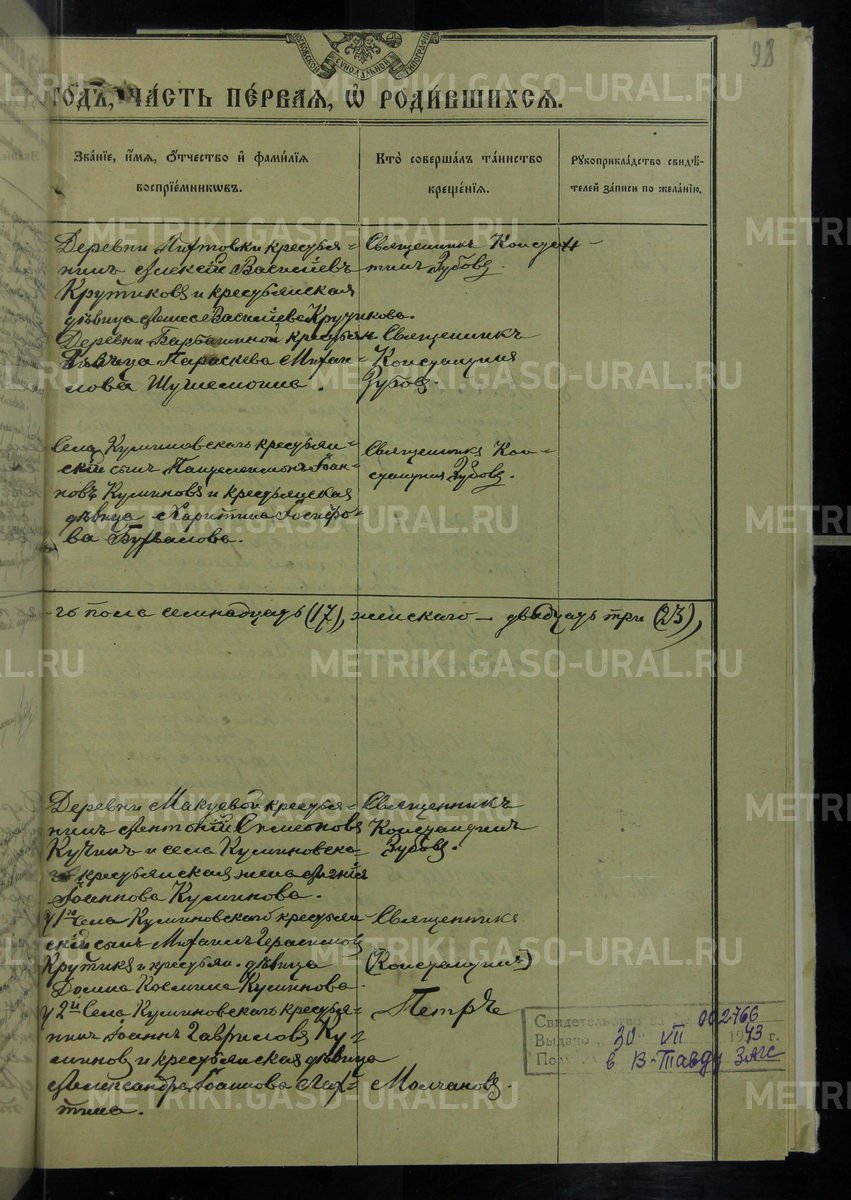 98
годъ, часть первая, ѡ родившихся.
Званіе, имя, отчество и фамилія
воспріемниковъ.
Кто совершалъ таинство
крещенія.
Рукоприкладство свидѣ-
телей записи по желанію.
Деревни крестья-
нинъ Алексій Васильевъ
Крутиковъ и крестьянская
дѣвица Васильева Крутикова.
Священникъ Констан-
тинъ Зубовъ.
Деревни крестьян.
дѣвица Параскева Михаи-
лова
Священникъ
Константинъ
Зубовъ.
Села Куминовскаго крестьян-
скій сынъ Пантелеимонъ Іоан-
новъ Куминовъ и крестьянская
дѣвица Харитина Іосифо-
ва
Священникъ Кон-
стантинъ Зубовъ.
-го пола семнадцать (17), женскаго - двадцать три (23),
Деревни Макуевой крестья-
нинъ Антоній Симеоновъ
Кучинъ и села Куминовска-
го крестьянская жена
Іоаннова Куминова.
Священникъ
Константинъ
Зубовъ.
У 1го Села Куминовскаго крестьян-
скій сынъ Михаилъ Герасимовъ
и крестьян. дѣвица
Домна Космина Куминова.
У 2й Села Куминовскаго крестья-
нинъ Іоаннъ Гавриловъ Ку-
миновъ и крестьянская дѣвица
Александра Іоаннова
Священникъ
(Константинъ)
Петръ
Молчановъ.
Свидетельство 002766
Выдано 30 VII 1943 г.
в В-Тавду ЗАГС
METRIKI.GASO-URAL.RU